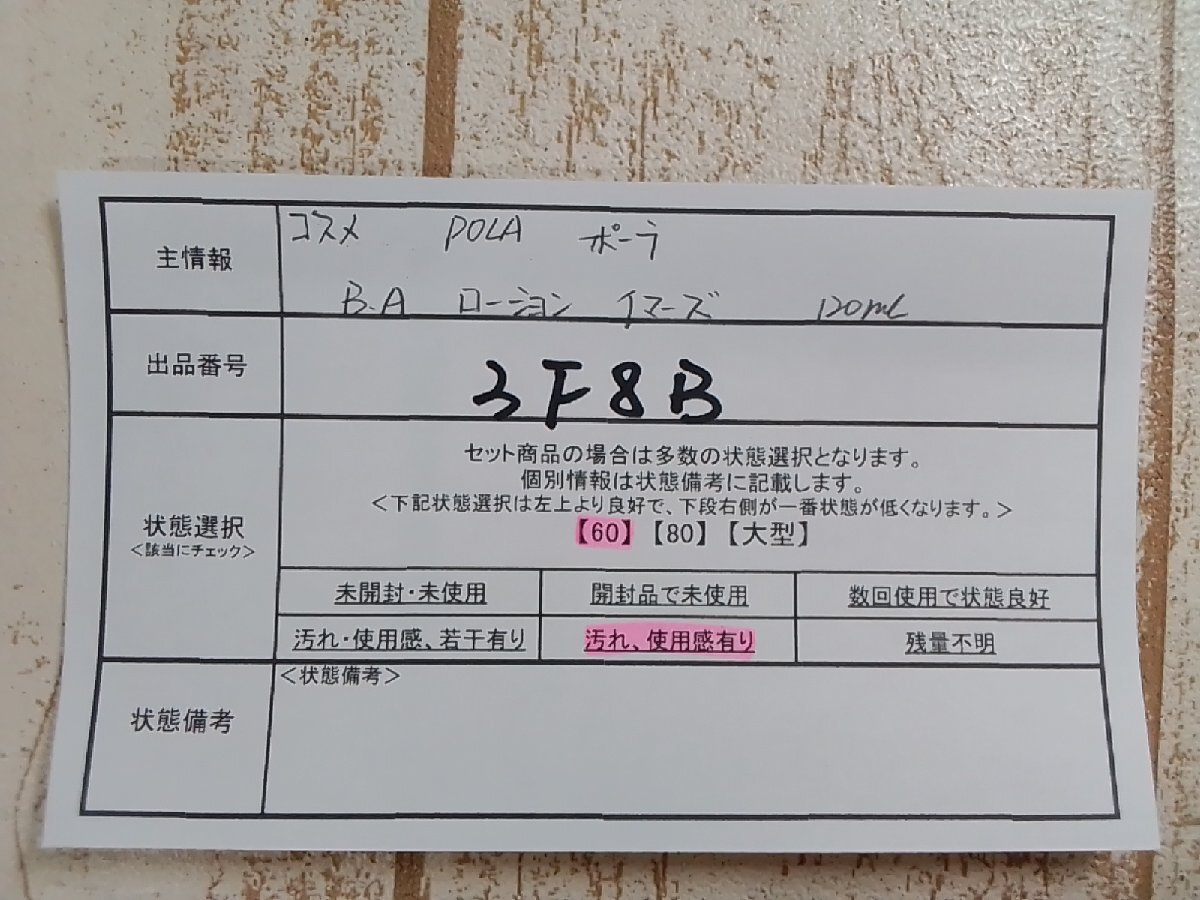 主情報
コスメ POLA ポーラ
B.A ローション イマーズ 120ml
出品番号
3F8B
状態選択
<該当にチェック>
セット商品の場合は多数の状態選択となります。
個別情報は状態備考に記載します。
<下記状態選択は左上より良好で、下段右側が一番状態が低くなります。>
【60】【80】【大型】
未開封・未使用
開封品で未使用
数回使用で状態良好
汚れ・使用感、若干有り
汚れ、使用感有り
残量不明
状態備考
<状態備考>